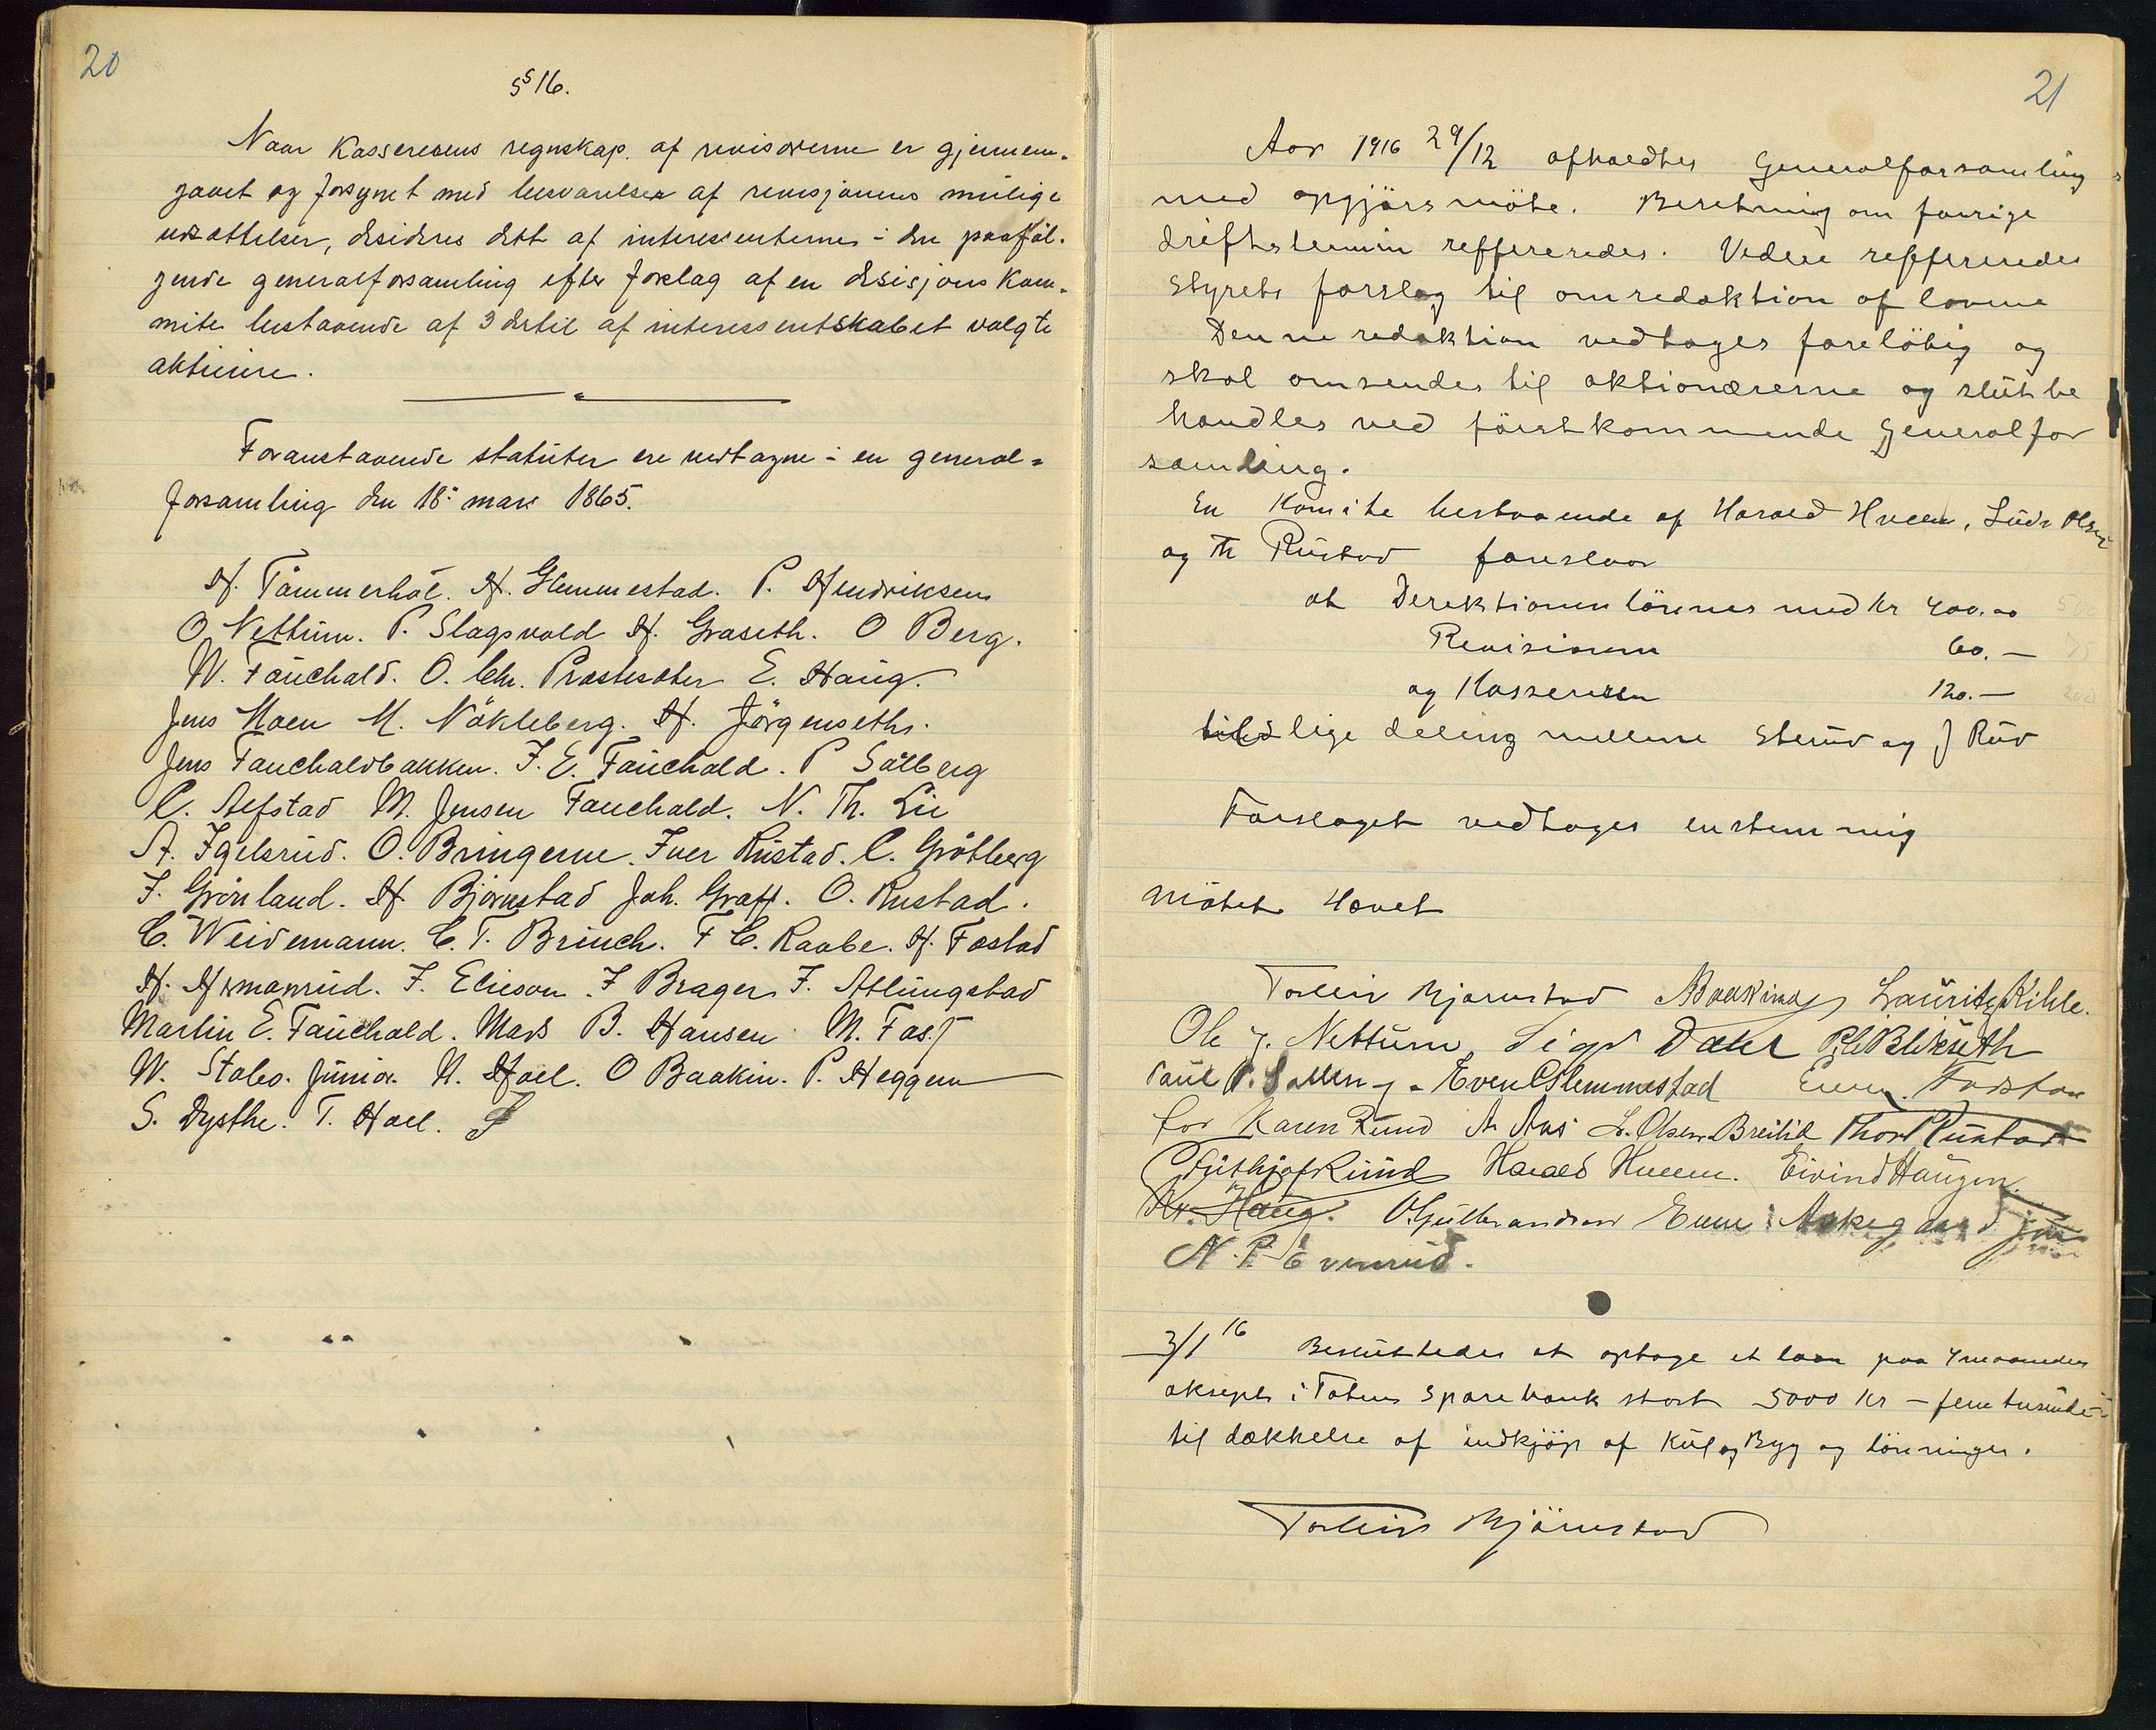 20
§ 16.
Naar Kasserens regnskap. af revisorerne er gjennem-
gaaet og forsynet med besvarelser af revisjonens mulige
utsættelser, desideres dett af interessenterne i den paaføl-
gende generalforsamling efter forslag af en desisjons kom-
mite bestaaende af 3 dertil af interessentskabet valgte
aktieiere.
Foranstaaende statuter ere vedtagne i en general-
forsamling den 18: mars 1865.
H. Tømmerhol. H. Glemmestad. P. Hendriksen
O Nettum. P. Slagsvold H. Graseth. O Berg.
W. Fauchald. O. Chr. Prestesæter E. Haug.
Jens Moen M. Nökleberg. H. Jörgenseth.
Jens Fauchaldbakken. J. E. Fauchald. P Sålberg
C. Alfstad M. Jensen Fauchald. N. Th. Lie
A. Igelsrud. O. Bringerne. Iver Rustad. C. Grötberg
J. Grönland. H Björnstad Joh. Graff. O. Rustad.
C. Weidemann. C. T. Brinch. F C. Raabe. H. Fostad
H. Hermanrud. J. Elieson. J Brager J. Atlungstad
Martin E. Fauchald. Mads B. Hansen M. Fos.
W. Stabo. junior. N. Hoel. O Baakin. P. Heggen
S. Dysthe. T. Hoel.
21
Aar 1916 29/12 afholdtes Generalforsamling
med opgjörsmöte. Beretning om forrige
driftstermin reffereredes. Videre reffereredes
Styrets forslag til omredaktion af lovene
Denne redaktion vedtages foreløbig og
skal omsendes til aktionærerne og slutbe
handles ved förstkommende Generalfor
samling.
En Komite bestaaende af Harald Hveem, Ludv Olsen
og Th Rustad foreslaar
at Direktionen lönnes med kr 400.00
Revisionen 60.—
og Kassereren 120.—
til lige deling mellem Sterud og J Rud
Forslaget vedtages enstemmig
Mötet Hævet
Torleiv Bjørnstad Baakind Lauritz Kihle.
Ole J. Nettum Sigv Dahl
Paul P. Sollberg Even Glemmestad Even Fodstad
for Karen Ruud A Aas L. Olsen Breilid Thor Rustad
Frithjof Ruud Harald Hveem. Eivind Haugen
Kr. Haug. O. Gulbrandsen Even Askegaard jun
N. P. Evenrud.
3/1 16 Besluttedes at optage et laan paa 4 maaneders
aksept i Totens Sparebank stort 5000 kr – fem tusinde –
til dækkelse af indkjöp af Kul og Byg og lönninger.
Torleiv Bjørnstad